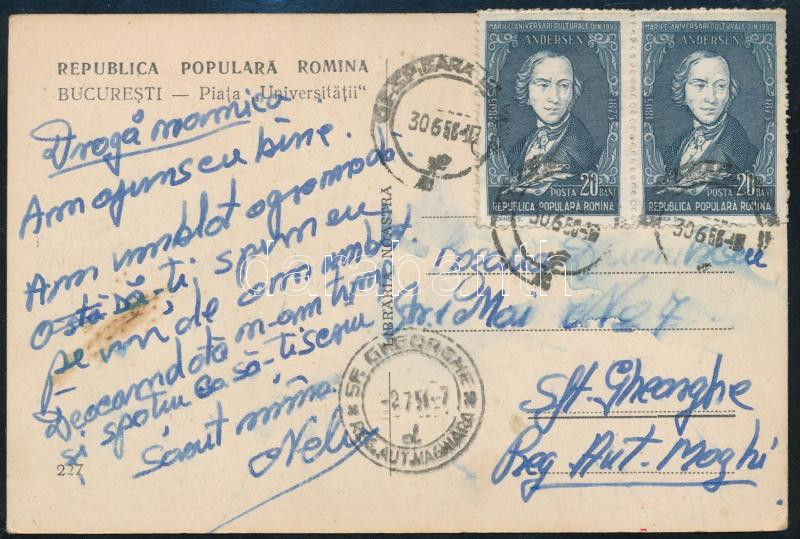 REPUBLICA POPULARĂ ROMINĂ
BUCUREȘTI — Piața „Universității"
Dragă mămica
Am ajuns cu bine.
Am umblat o gramadă
o să-ți spun eu
pe un de am umblat.
Deocamdată n-am timp
și spațiu ca să-ți scriu
Sărut mîna
Nelu
227
LIBRĂRIA NOASTRĂ
MARILE ANIVERSARI CULTURALE DIN 1955
ANDERSEN
1805
1875
POSTA 20 BANI
REPUBLICA POPULARĂ ROMINĂ
MARILE ANIVERSARI CULTURALE DIN 1955
ANDERSEN
1805
1875
POSTA 20 BANI
REPUBLICA POPULARĂ ROMINĂ
30 6 56
30 6 56
30 6 56
1 Mai No 7
Sft. Gheorghe
Reg. Aut. Maghi
SF. GHEORGHE
-2 7 56 -7
REG. AUT. MAGHIARA
darabanth